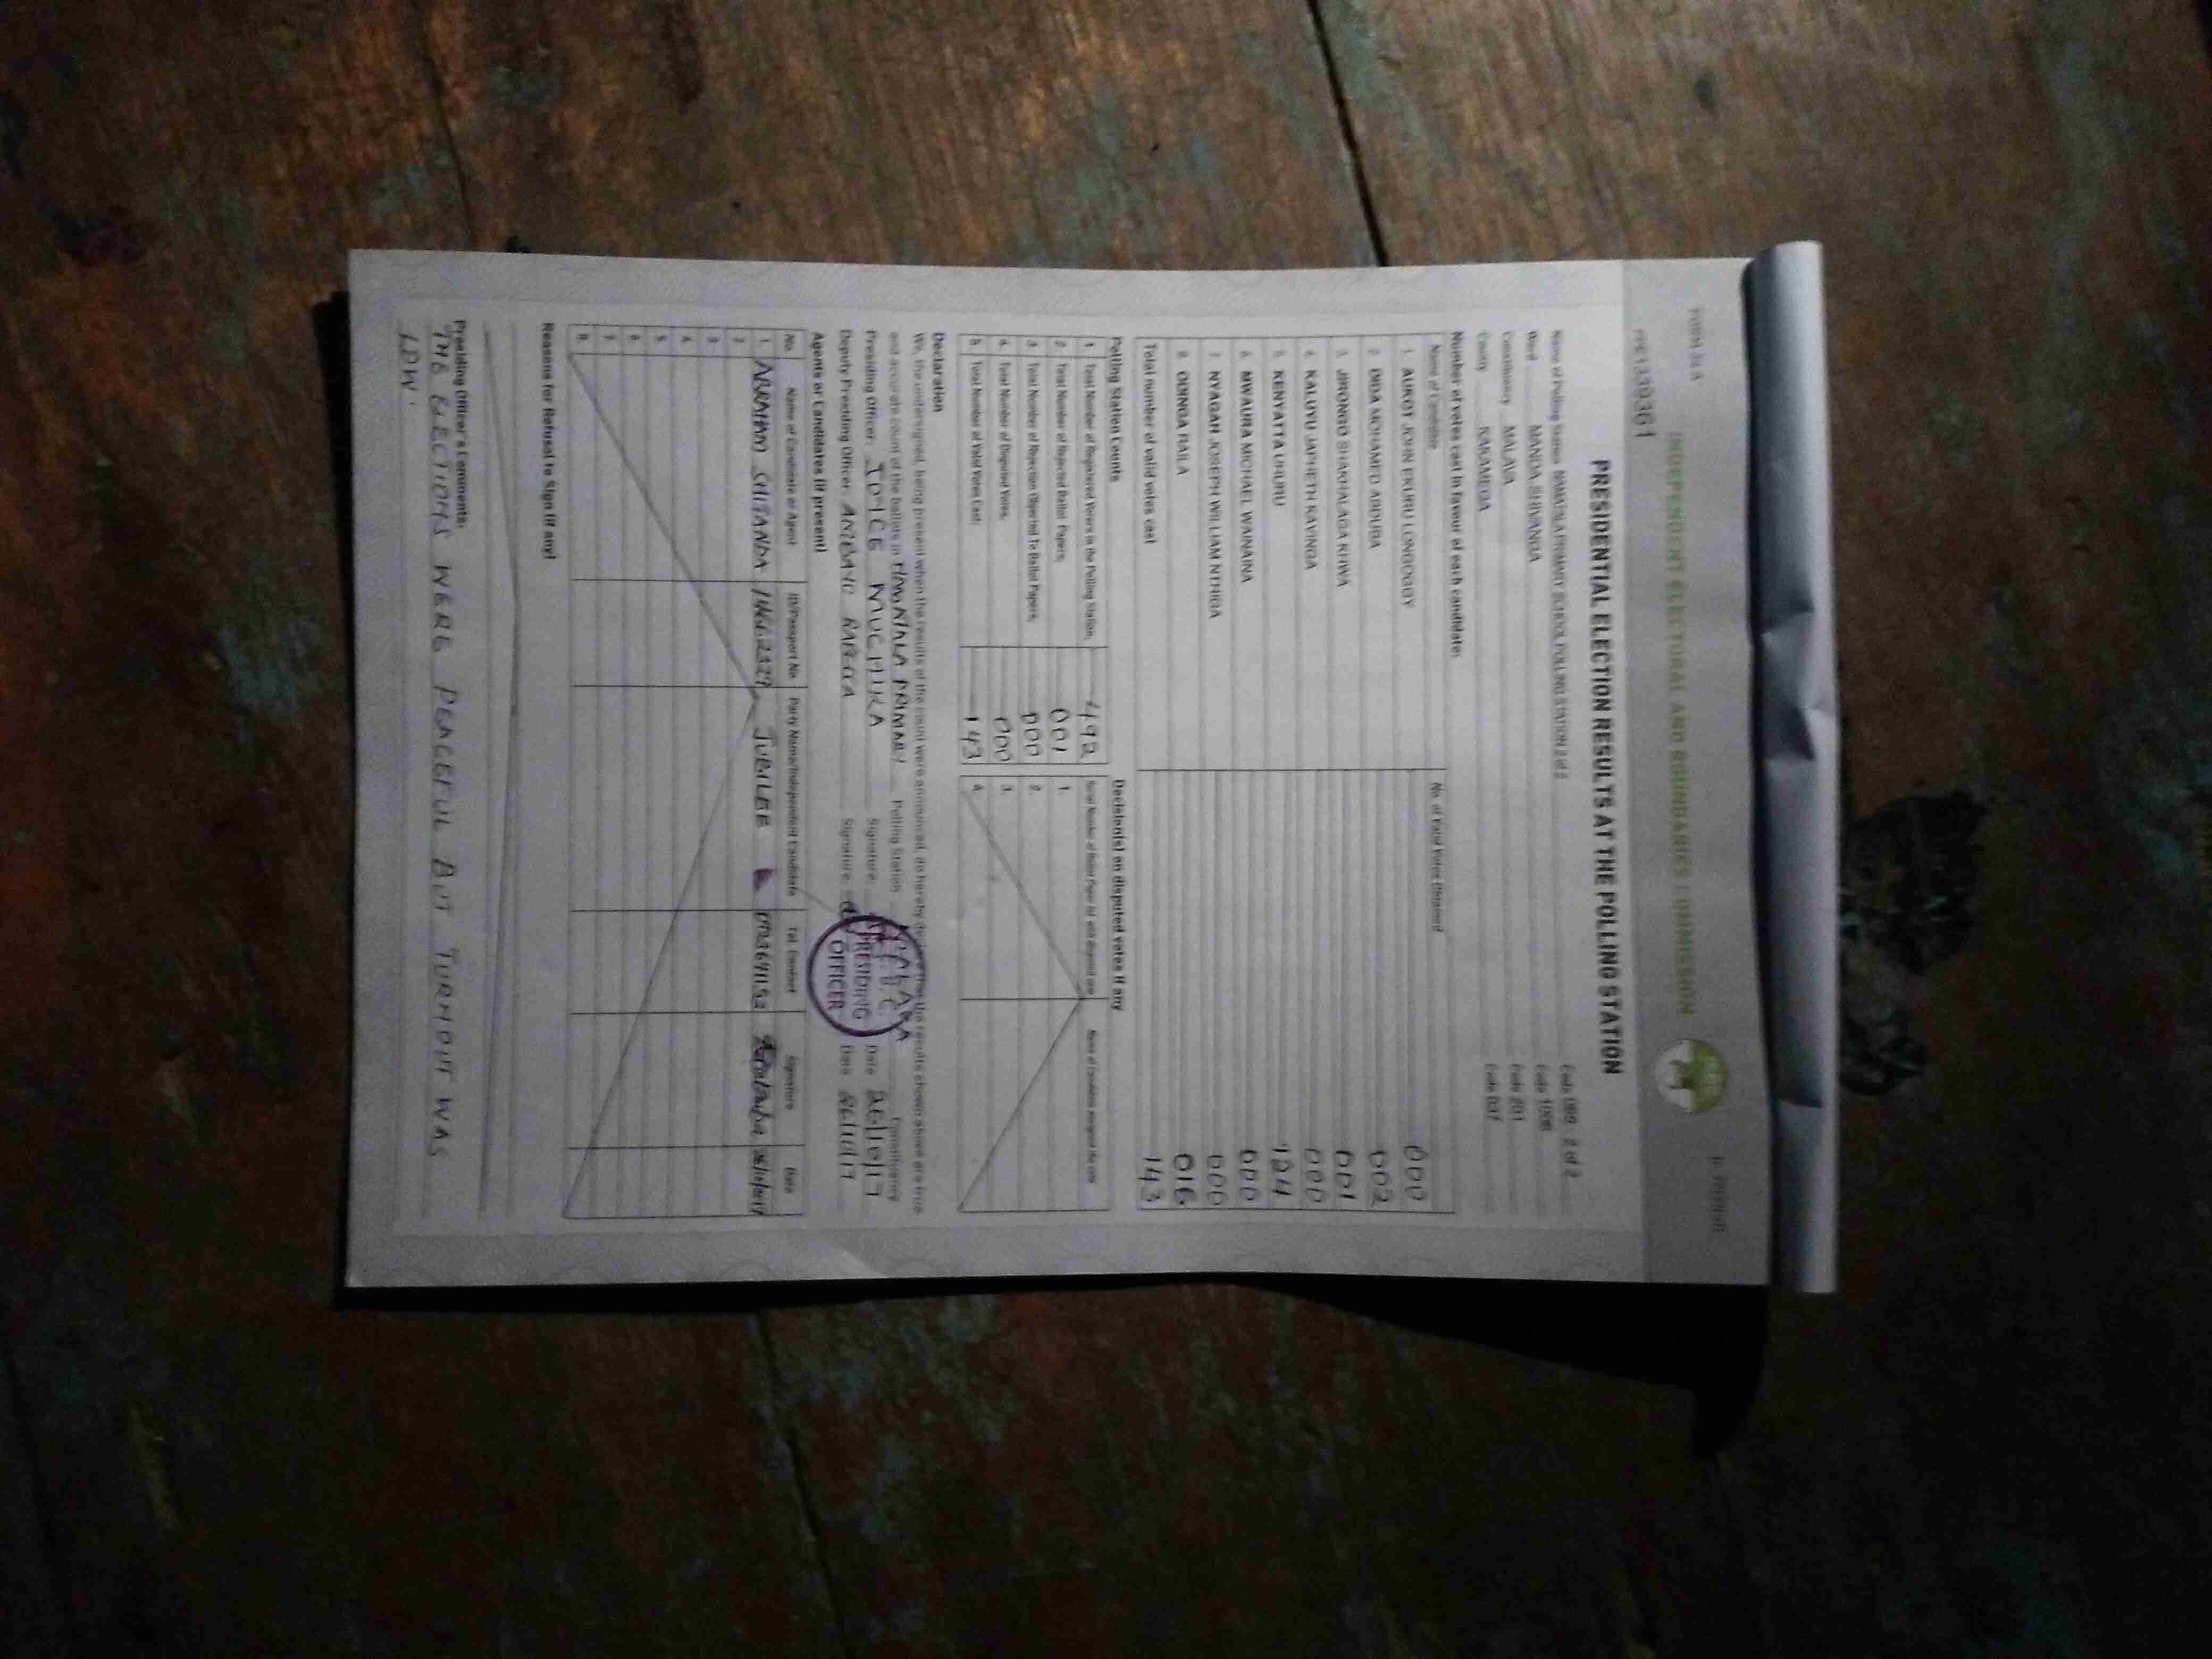 FORM 34A
INDEPENDENT ELECTORAL AND BOUNDARIES COMMISSION
PRESIDENTIAL ELECTION RESULTS AT THE POLLING STATION
Name of Polling Station PRIMARY SCHOOL POLLING STATION 2 of 2 Code 2 of 2
Ward MANDA-SHIVANGA Code
Constituency MALAVA Code 201
County KAKAMEGA Code 037
Number of votes cast in favour of each candidate:
Name of Candidate No. of Valid Votes Obtained
1. AUKOT JOHN EKURU LONGOGGY 000
2. DIDA MOHAMED ABDUBA 002
3. JIRONGO SHAKHALAGA KHWA 001
4. KALUYU JAPHETH KAVINGA 000
5. KENYATTA UHURU 124
6. MWAURA MICHAEL WAINAINA 000
7. NYAGAH JOSEPH WILLIAM NTHIGA 000
8. ODINGA RAILA 016
Total number of valid votes cast 143
Polling Station Counts
1. Total Number of Registered Voters in the Polling Station; 492
2. Total Number of Rejected Ballot Papers; 001
3. Total Number of Rejection Objected To Ballot Papers; 000
4. Total Number of Disputed Votes; 000
5. Total Number of Valid Votes Cast; 143
Decision(s) on disputed votes if any
1.
2.
3.
4.
Declaration
We, the undersigned, being present when the results of the count were announced, do hereby declare that the results shown above are a true
and accurate count of the ballots in Polling Station Constituency
Presiding Officer: Signature: Date 26/10/17
Deputy Presiding Officer: Signature: Date 26/10/17
PRESIDING
OFFICER
Agents or Candidates (if present)
No. Name of Candidate or Agent ID/Passport No. Party Name/Independent Candidate Tel. Contact Signature Date
1. ABRAHAM SHITANDA JUBILEE
2.
3.
4.
5.
6.
7.
8.
Reasons for Refusal to Sign (if any)
Presiding Officer's Comments:
THE ELECTIONS WERE PEACEFUL BUT TURNOUT WAS
LOW.